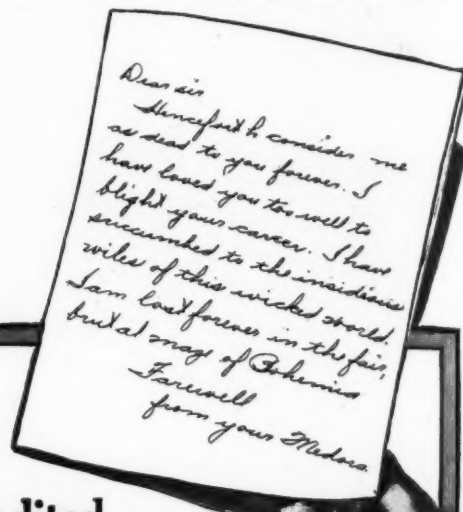 Dear sir
Henceforth consider me
as dead to you forever. I
have loved you too well to
blight your career. I have
succumbed to the insidious
wiles of this wicked world.
I am lost forever in the fair,
brutal maze of Bohemia
Farewell
from your Medora.